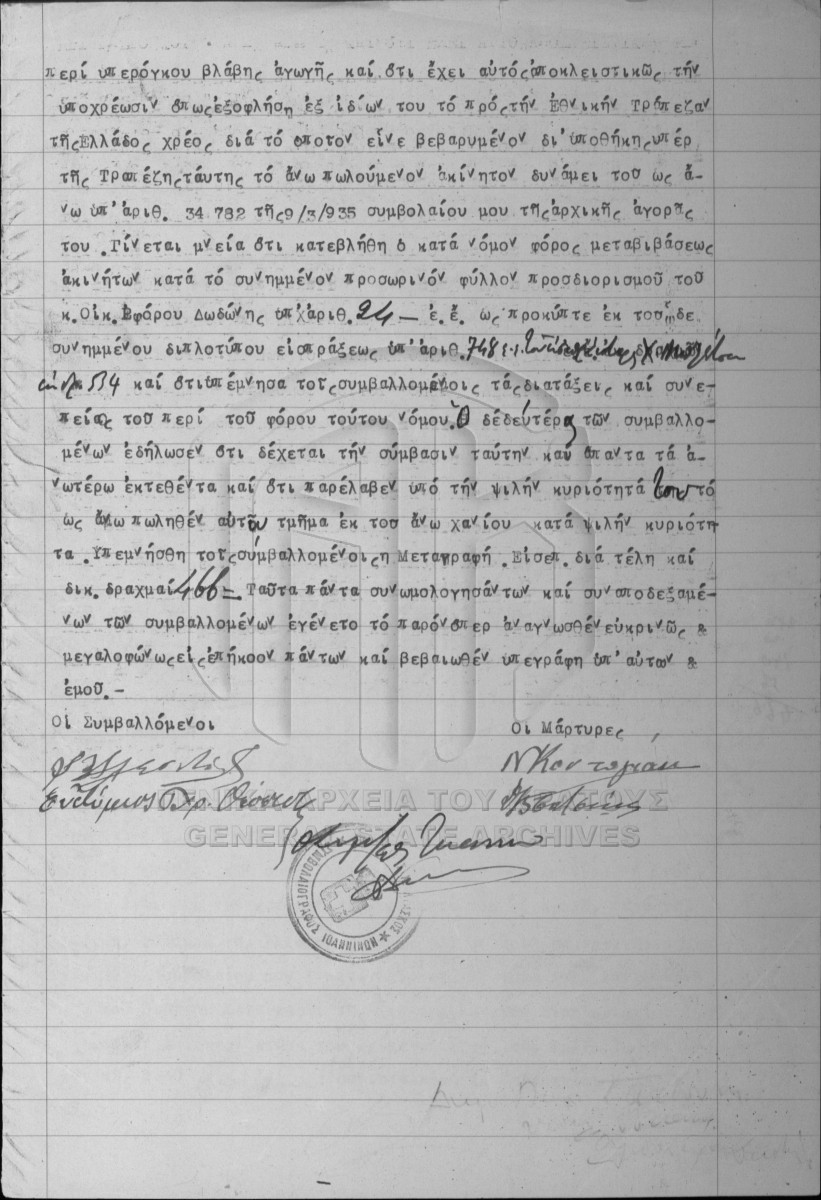 περί υπερόγκου βλάβης άγωγής καί ότι έχει αυτός άποκλειστικῶς τήν
υποχρέωσιν όπως εξοφλήση εξ ιδίων του τό πρός τήν Εθνικήν Τράπεζαν
τῆς Ελλάδος χρέος διά τό οποτον εἶνε βεβαρυμένον δι' υποθήκης υπέρ
τῆς Τραπέζης ταύτης τό άνω πωλούμενον άκίνητον δυνάμει τοσ ως ά-
νω υπ' άριθ. 34.782 τῆς 9/3/935 συμβολαίου μου τῆς άρχικῆς άγορᾶς
του .Γίνεται μνεία ότι κατεβλήθη ό κατά νόμον φόρος μεταβιβάσεως
άκινήτων κατά τό συνημμένον προσωρινόν φύλλον προσδιορισμού τοσ
κ.Οικ.Εφόρου Δωδώνης υπ' άριθ. 24 — έ.έ. ως προκύπτε εκ τοσ δε
συνημμένου διπλοτύπου εισπράξεως υπ' άριθ. 748
534 καί ότι υπέμνησα τοῖς συμβαλλομένοις τάς διατάξεις καί συνε-
πείας τοσ περί τοσ φόρου τούτου νόμου. Ό δέ δεύτερος τῶν συμβαλλο-
μένων εδήλωσεν ότι δέχεται τήν σύμβασιν ταύτην καί άπαντα τά ά-
νωτέρω έκτεθέντα καί ότι παρέλαβεν υπό τήν ψιλήν κυριότητά του τό
ως άνω πωληθέν αυτῷ τμῆμα εκ τοσ άνω χανίου κατά ψιλήν κυριότη
τα .Υπεμνήσθη τοῖς συμβαλλομένοις η Μεταγραφή .Εισεπ. διά τέλη καί
δικ. δραχμαί 466 = Ταῦτα πάντα συνωμολογησάντων καί συναποδεξαμέ-
νων τῶν συμβαλλομένων έγένετο τό παρόν όπερ άναγνωσθέν ευκρινῶς &
μεγαλοφώνως εις έπήκοον πάντων καί βεβαιωθέν υπεγράφη υπ' αυτων &
έμοσ.-
Οι Συμβαλλόμενοι
Οι Μάρτυρες
ΓΕΝΙΚΑ ΑΡΧΕΙΑ ΤΟΥ ΚΡΑΤΟΥΣ
GENERAL STATE ARCHIVES
ΣΥΜΒΟΛΑΙΟΓΡΑΦΟΣ ΙΩΑΝΝΙΝΩΝ